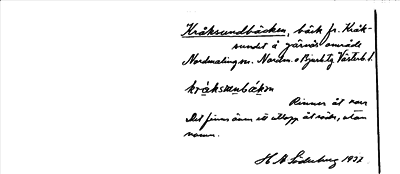 Kråksundbäcken, bäck fr. Kråk-
sundet å järnäs område
Nordmaling sn. Nordm. o Bjurh. tg Västerb. l.
kråksundbäkεn
Rinner åt
Det finns även ett utlopp åt söder, utan
namn.
H A Söderberg 1937